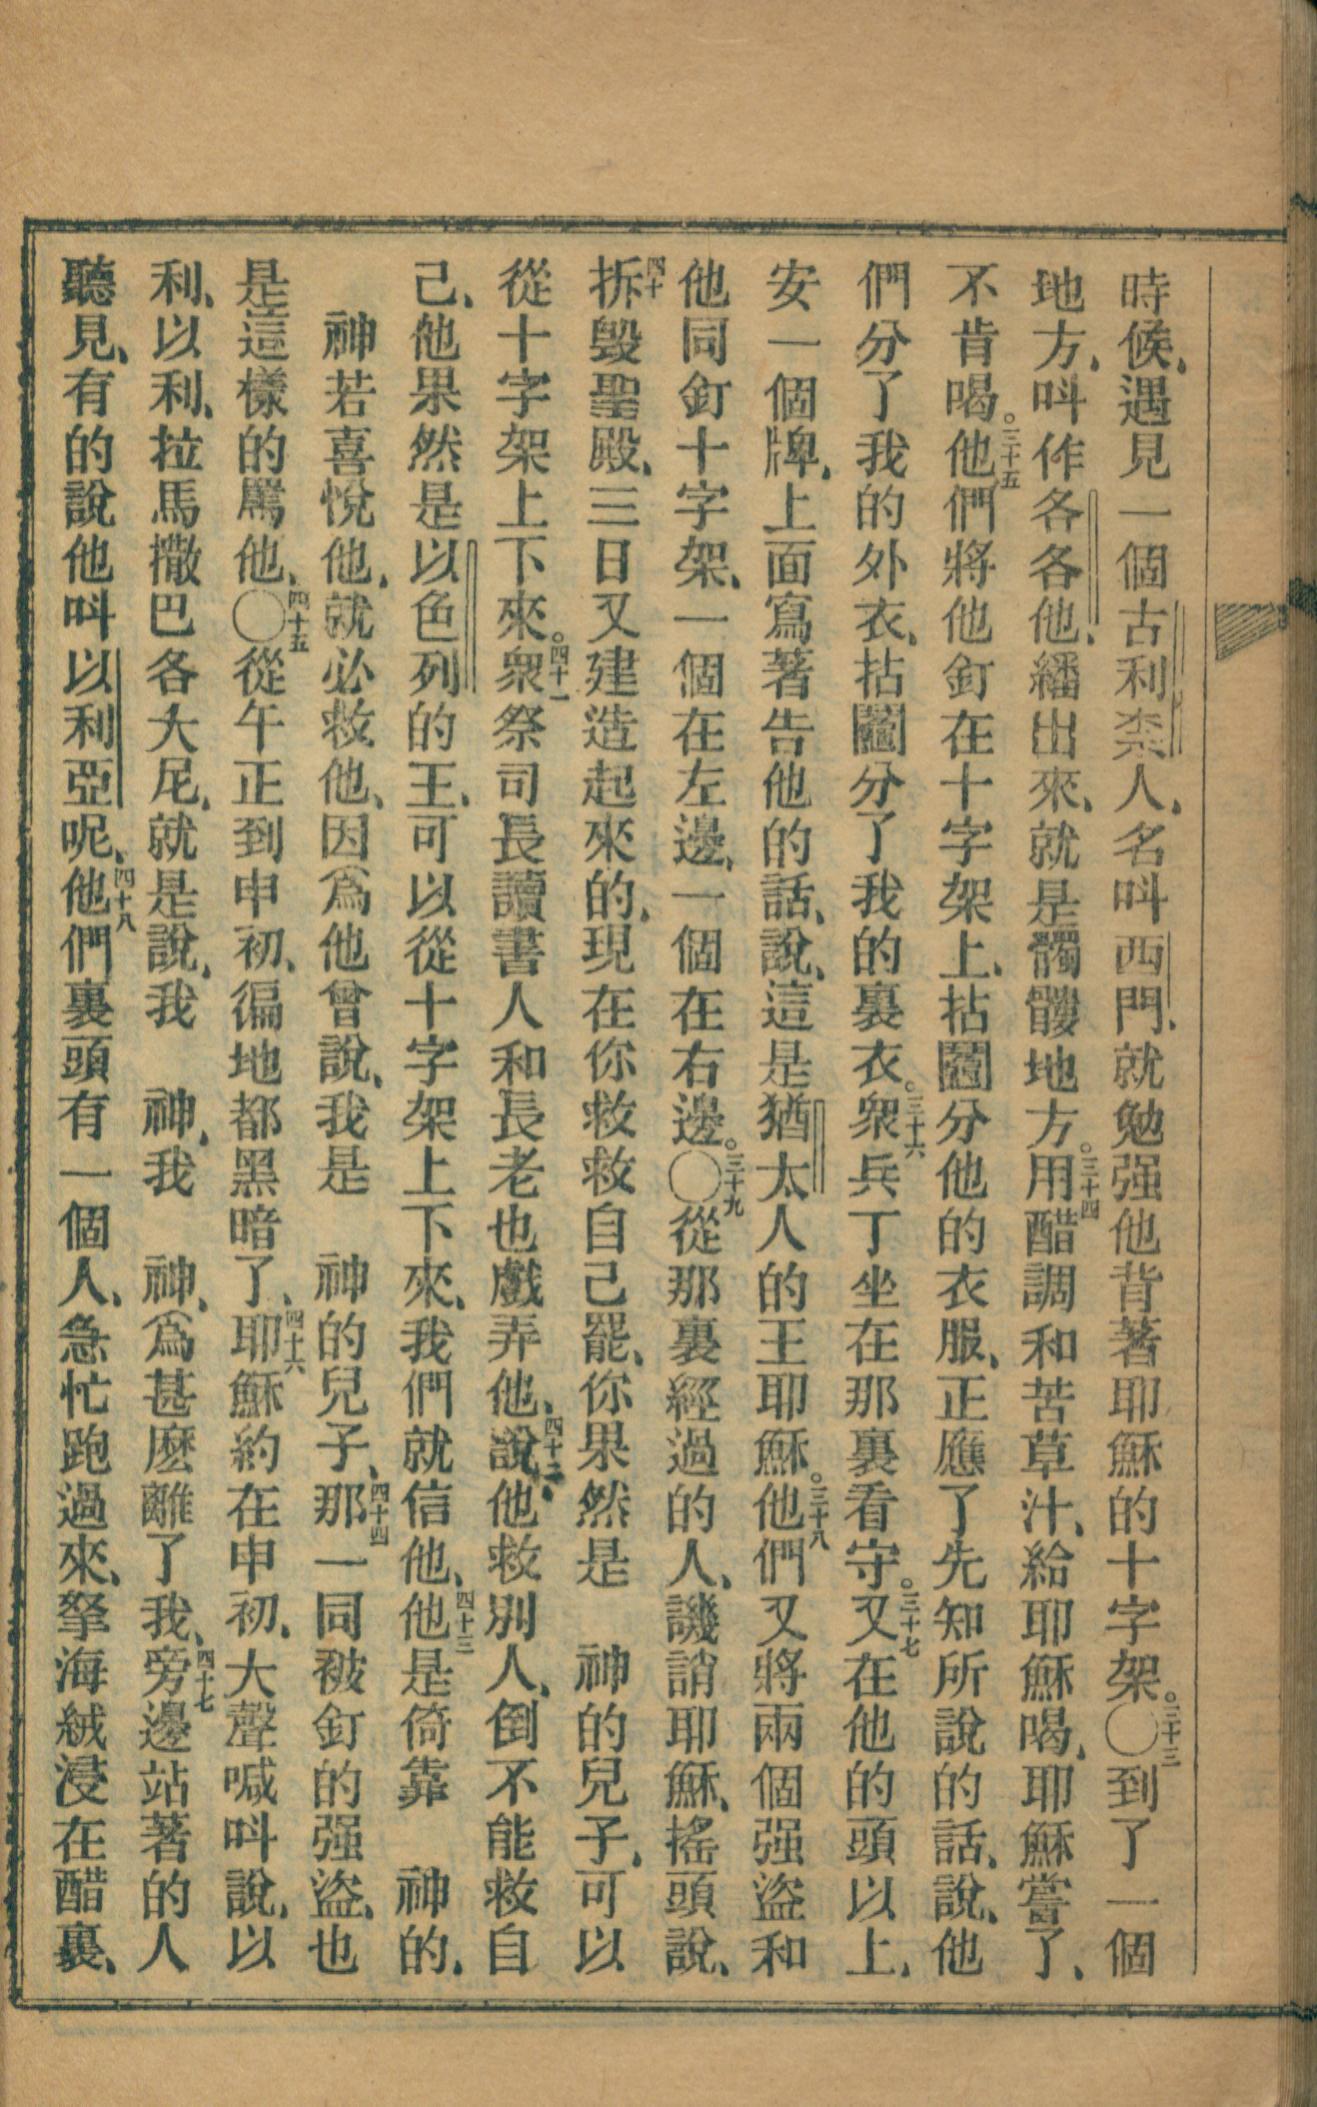 時候、遇見一個古利柰人、名呌西門、就勉强他背著耶穌的十字架。三十三〇到了一個
地方、呌作各各他、繙出來、就是髑髏地方。三十四用醋調和苦草汁、給耶穌喝、耶穌嘗了、
不肯喝。三十五他們將他釘在十字架上、拈鬮分他的衣服、正應了先知所說的話、說、他
們分了我的外衣、拈鬮分了我的裏衣。三十六衆兵丁坐在那裏看守。三十七又在他的頭以上、
安一個牌、上面寫著告他的話、說、這是猶太人的王耶穌。三十八他們又將兩個强盜和
他同釘十字架、一個在左邊、一個在右邊。三十九〇從那裏經過的人、譏誚耶穌、搖頭說、
四十拆毀聖殿、三日又建造起來的、現在你救救自己罷、你果然是　神的兒子、可以
從十字架上下來。四十一衆祭司長讀書人和長老也戲弄他、四十二說、他救別人、倒不能救自
己、他果然是以色列的王、可以從十字架上下來、我們就信他、四十三他是倚靠　神的、
　神若喜悅他、就必救他、因爲他曾說、我是　神的兒子、四十四那一同被釘的强盜、也
是這樣的罵他、四十五〇從午正到申初、徧地都黑暗了、四十六耶穌約在申初、大聲喊呌說、以
利、以利、拉馬撒巴各大尼、就是說、我　神、我　神、爲甚麽離了我、四十七旁邊站著的人
聽見、有的說他呌以利亞呢、四十八他們裏頭有一個人、急忙跑過來、拏海絨浸在醋裏、